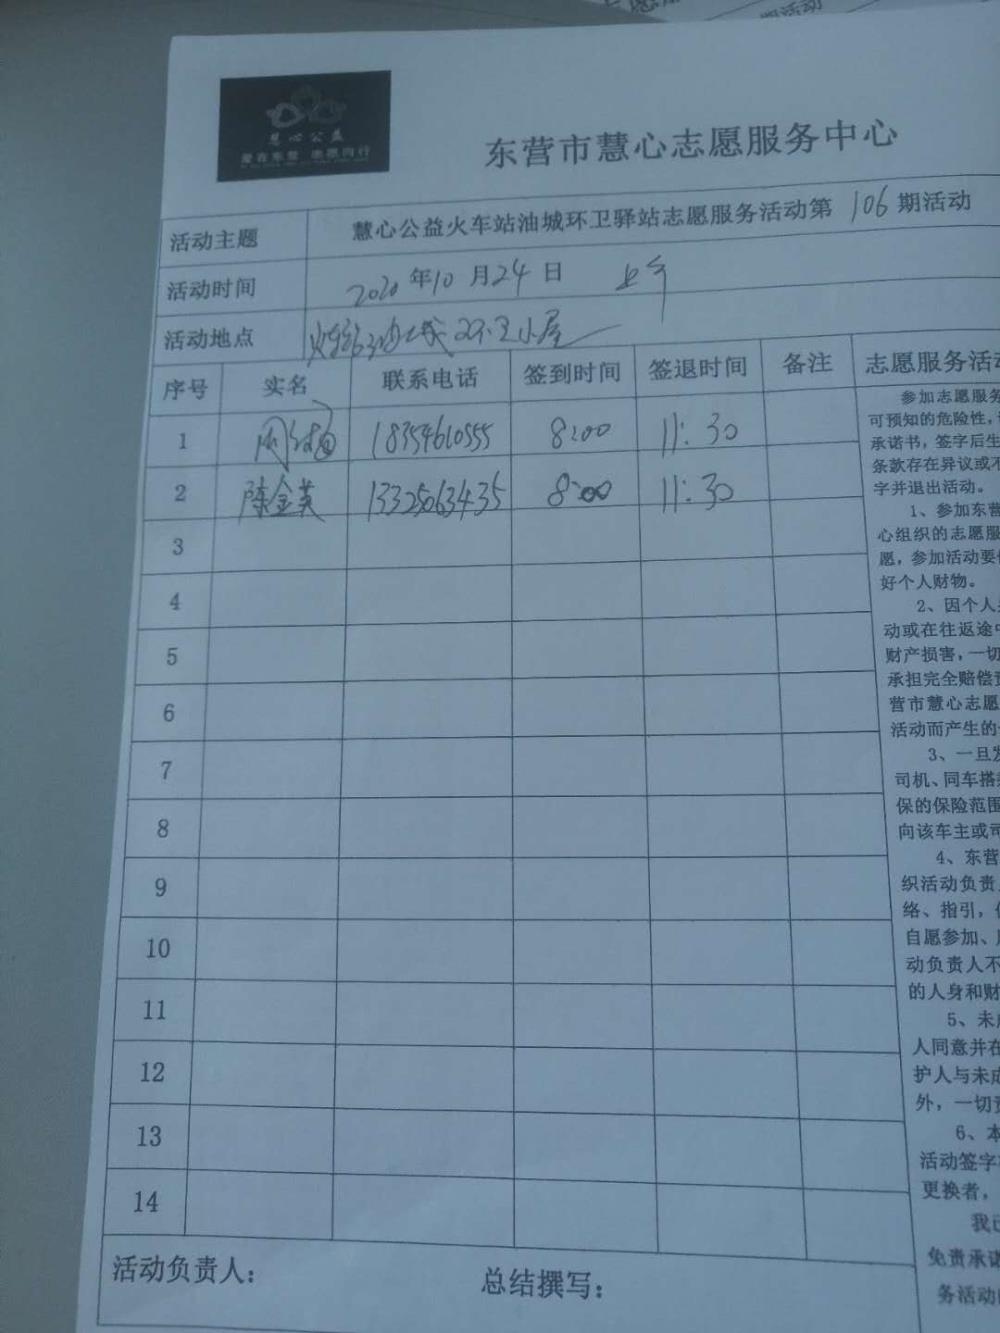 慧心公益
爱在东营 志愿同行
东营市慧心志愿服务中心
活动主题 慧心公益火车站油城环卫驿站志愿服务活动第106期活动
活动时间 2020年10月24日 上午
活动地点 火车站油城环卫小屋
序号 实名 联系电话 签到时间 签退时间 备注 志愿服务活动
1 周 18354610555 8:00 11:30
2 陈金英 13325063435 8:00 11:30
3
4
5
6
7
8
9
10
11
12
13
14
参加志愿服务
可预知的危险性，
承诺书，签字后生
条款存在异议或不
字并退出活动。
1、参加东营
心组织的志愿服
愿，参加活动要
好个人财物。
2、因个人
动或在往返途中
财产损害，一切
承担完全赔偿
营市慧心志愿
活动而产生的
3、一旦发
司机、同车搭
保的保险范围
向该车主或司
4、东营
织活动负责
络、指引，
自愿参加、
动负责人不
的人身和财
5、未成
人同意并在
护人与未成
外，一切
6、本
活动签字
更换者，
我已
免责承诺
务活动
活动负责人： 总结撰写：